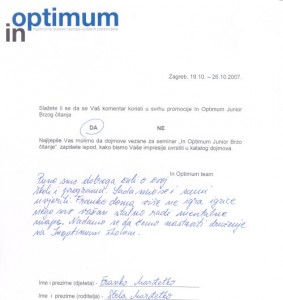 optimum
in
Zagreb, 19.10. – 26.10.2007.
Slažete li se da se Vaš komentar koristi u svrhu promocije In Optimum Junior
Brzog čitanja
DA NE
Najljepše Vas molimo da dojmove vezane za seminar „In Optimum Junior Brzo
čitanje“ zapišete ispod, kako bismo Vaše impresije uvrstili u katalog dojmova.
In Optimum team
Puno smo dobroga čuli o ovoj
školi i programu. Sada smo se i sami
uvjerili. Franko doma više ne igra igrice
nego me stalno radi mentalne
mape. Nadamo se da ćemo nastaviti druženje
sa Inoptimum školom.
Ime i prezime (djeteta) - Franko
Ime i prezime (roditelja) -